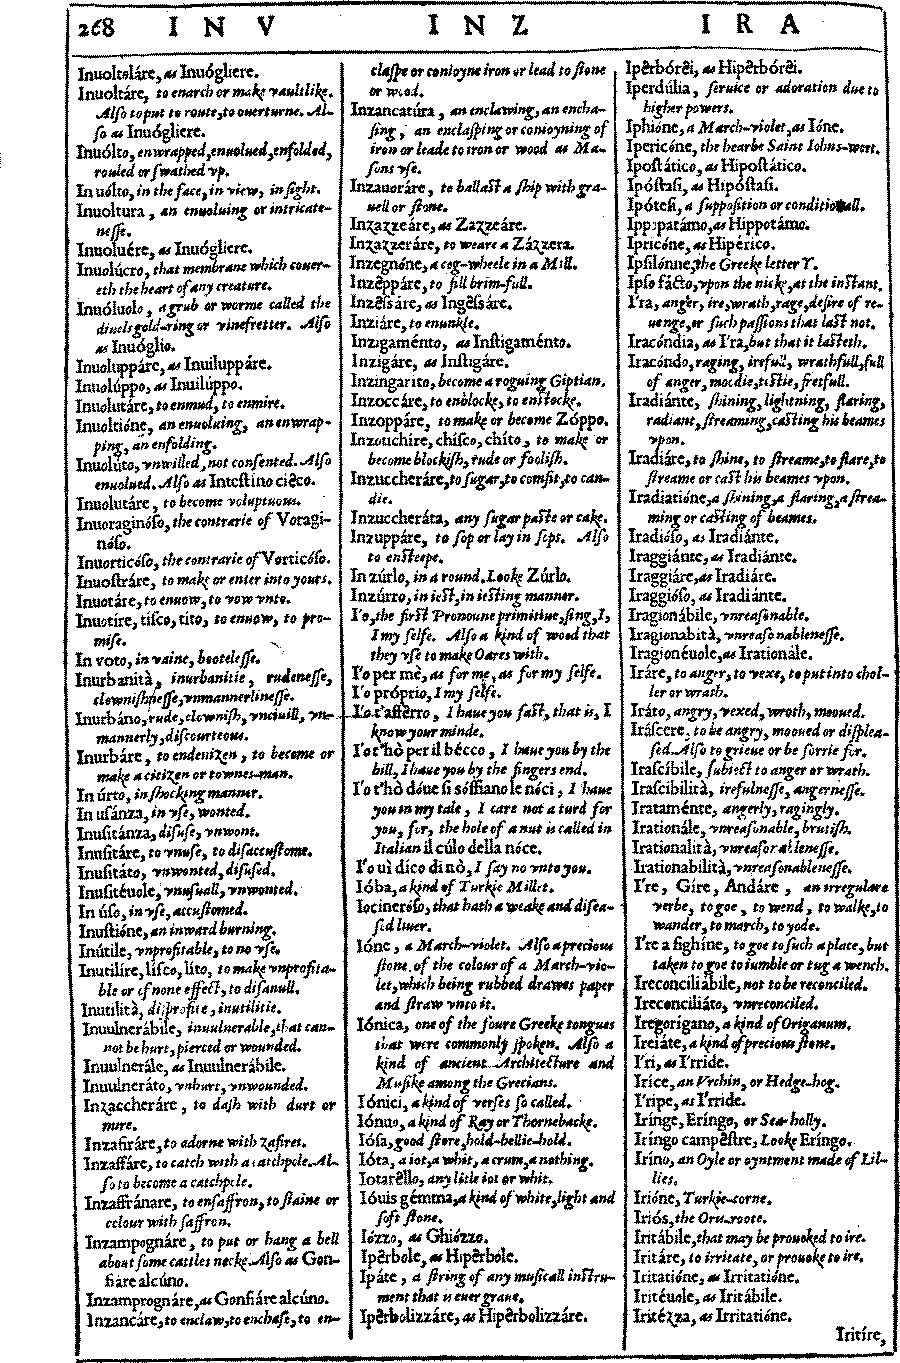 268 I N V I N Z I R A
Inuoltoláre, as Inuógliere.
Inuoltáre, to enarch or make vaultlike.
Also to put to route, to ouerturne. Al-
so as Inuógliere.
Inuólto, enwrapped, enuolued, enfolded,
rouled or swathed vp.
In uólto, in the face, in view, in sight.
Inuoltura, an enuoluing or intricate-
nesse.
Inuoluére, as Inuógliere.
Inuolúcro, that membrane which couer-
eth the heart of any creature.
Inuóluolo, a grub or worme called the
diuels gold-ring or vinefretter. Also
as Inuóglio.
Inuoluppáre, as Inuiluppáre.
Inuolúppo, as Inuilúppo.
Inuolutáre, to enmud, to enmire.
Inuoltióne, an enuoluing, an enwrap-
ping, an enfolding.
Inuolúto, vnwilled, not consented. Also
enuolued. Also as Intestino ciêco.
Inuolutáre, to become voluptuous.
Inuoraginóso, the contrarie of Voragi-
nóso.
Inuorticóso, the contrarie of Vorticóso.
Inuostráre, to make or enter into yours.
Inuotáre, to enuow, to vow vnto.
Inuotíre, tísco, títo, to enuow, to pro-
mise.
In voto, in vaine, bootelesse.
Inurbanità, inurbanitie, rudenesse,
clownishnesse, vnmannerlinesse.
Inurbáno, rude, clownish, vnciuill, vn-
mannerly, discourteous.
Inurbáre, to endenizen, to become or
make a citizen or townes-man.
In úrto, in shocking manner.
In usánza, in vse, wonted.
Inusitánza, disuse, vnwont.
Inusitáre, to vnuse, to disaccustome.
Inusitáto, vnwonted, disused.
Inusitéuole, vnusuall, vnwonted.
In úso, in vse, accustomed.
Inustióne, an inward burning.
Inútile, vnprofitable, to no vse.
Inutilíre, lísco, líto, to make vnprofita-
ble or of none effect, to disanull.
Inutilità, disprofite, inutilitie.
Inuulnerábile, inuulnerable, that can-
not be hurt, pierced or wounded.
Inuulnerále, as Inuulnerábile.
Inuulneráto, vnhurt, vnwounded.
Inzaccheráre, to dash with durt or
mire.
Inzafiráre, to adorne with zafires.
Inzaffáre, to catch with a catchpole. Al-
so to become a catchpole.
Inzaffránare, to ensaffron, to staine or
colour with saffron.
Inzampognáre, to put or hang a bell
about some cattles necke. Also as Gon-
fiáre alcúno.
Inzamprognáre, as Gonfiáre alcúno.
Inzancáre, to enclaw, to enchase, to en-
claspe or conioyne iron or lead to stone
or wood.
Inzancatúra, an enclawing, an encha-
sing, an enclasping or conioyning of
iron or leade to iron or wood as Ma-
sons vse.
Inzauoráre, to ballast a ship with gra-
uell or stone.
Inzazzeáre, as Zazzeáre.
Inzazzeráre, to weare a Zázzera.
Inzegnóne, a cog-wheele in a Mill.
Inzêppáre, to fill brim-full.
Inzêssáre, as Ingêssáre.
Inziáre, to enunkle.
Inzigaménto, as Instigaménto.
Inzigáre, as Instigáre.
Inzingaríto, become a roguing Giptian.
Inzoccáre, to enblocke, to enstocke.
Inzoppáre, to make or become Zóppo.
Inzotichíre, chísco, chíto, to make or
become blockish, rude or foolish.
Inzuccheráre, to sugar, to comfit, to can-
die.
Inzuccheráta, any sugar paste or cake.
Inzuppáre, to sop or lay in sops. Also
to ensteepe.
In zúrlo, in a round. Looke Zúrlo.
Inzúrro, in iest, in iesting manner.
I'o, the first Pronoune primitiue, sing, I,
I my selfe. Also a kind of wood that
they vse to make Oares with.
I'o per mè, as for me, as for my selfe.
I'o próprio, I my selfe.
I'o t'afférro, I haue you fast, that is, I
know your minde.
I'o t'hò per il bécco, I haue you by the
bill, I haue you by the fingers end.
I'o t'hò dóue si sóffiano le nóci, I haue
you in my tale, I care not a turd for
you, for, the hole of a nut is called in
Italian il cúlo della nóce.
I'o uì dico di nò, I say no vnto you.
Ióba, a kind of Turkie Millet.
Iocineróso, that hath a weake and disea-
sed liuer.
Ióne, a March-violet. Also a precious
stone of the colour of a March-vio-
let, which being rubbed drawes paper
and straw vnto it.
Iónica, one of the foure Greeke tongues
that were commonly spoken. Also a
kind of ancient Architecture and
Musike among the Grecians.
Iónici, a kind of verses so called.
Iónuo, a kind of Ray or Thornebacke.
Iósa, good store, hold-bellie-hold.
Ióta, a iot, a whit, a crum, a nothing.
Iotarêllo, any litle iot or whit.
Ióuis gémma, a kind of white, light and
soft stone.
Iózzo, as Ghiózzo.
Ipêrbole, as Hipêrbole.
Ipáte, a string of any musicall instru-
ment that is euer graue.
Ipêrbolizzáre, as Hipêrbolizzáre.
Ipêrbórêi, as Hipêrbórêi.
Iperdúlia, seruice or adoration due to
higher powers.
Iphióne, a March-violet, as Ióne.
Ipericóne, the hearbe Saint Iohns-wort.
Ipostático, as Hipostático.
Ipóstasi, as Hipóstasi.
Ipótesi, a supposition or conditionall.
Ippopatámo, as Hippotámo.
Ipricóne, as Hipérico.
Ipsilónne, the Greeke letter Y.
Ipso fácto, vpon the nicke, at the instant.
I'ra, anger, ire, wrath, rage, desire of re-
uenge, or such passions that last not.
Iracóndia, as I'ra, but that it lasteth.
Iracóndo, raging, irefull, wrathfull, full
of anger, moodie, tistie, fretfull.
Iradiánte, shining, lightning, flaring,
radiant, streaming, casting his beames
vpon.
Iradiáre, to shine, to streame, to flare, to
streame or cast his beames vpon.
Iradiatióne, a shining, a flaring, a strea-
ming or casting of beames.
Iradióso, as Iradiánte.
Iraggiánte, as Iradiánte.
Iraggiáre, as Iradiáre.
Iraggióso, as Iradiánte.
Iragionábile, vnreasonable.
Iragionabità, vnreasonablenesse.
Iragionéuole, as Irationále.
Iráre, to anger, to vexe, to put into chol-
ler or wrath.
Iráto, angry, vexed, wroth, mooued.
Iráscere, to be angry, mooued or displea-
sed. Also to grieue or be sorrie for.
Irascíbile, subiect to anger or wrath.
Irascibilità, irefulnesse, angernesse.
Irataménte, angerly, ragingly.
Irationále, vnreasonable, brutish.
Irationalità, vnreasonablenesse.
Irationabilità, vnreasonablenesse.
I're, Gíre, Andáre, an irregulare
verbe, to goe, to wend, to walke, to
wander, to march, to yode.
I're a fighíne, to goe to such a place, but
taken to goe to iumble or tug a wench.
Ireconciliábile, not to be reconciled.
Ireconciliáto, vnreconciled.
Iregorigano, a kind of Origanum.
Ireiáte, a kind of precious stone.
I'ri, as I'rride.
Iríce, an Vrchin, or Hedge-hog.
I'ripe, as I'rride.
Irínge, Eríngo, or Sea-holly.
Iríngo campêstre, Looke Eríngo.
Iríno, an Oyle or oyntment made of Lil-
lies.
Irióne, Turkie-corne.
Iriós, the Oru-roote.
Iritábile, that may be prouoked to ire.
Iritáre, to irritate, or prouoke to ire.
Iritatióne, as Irritatióne.
Iritéuole, as Iritábile.
Iritézza, as Irritatióne.
Iritíre,